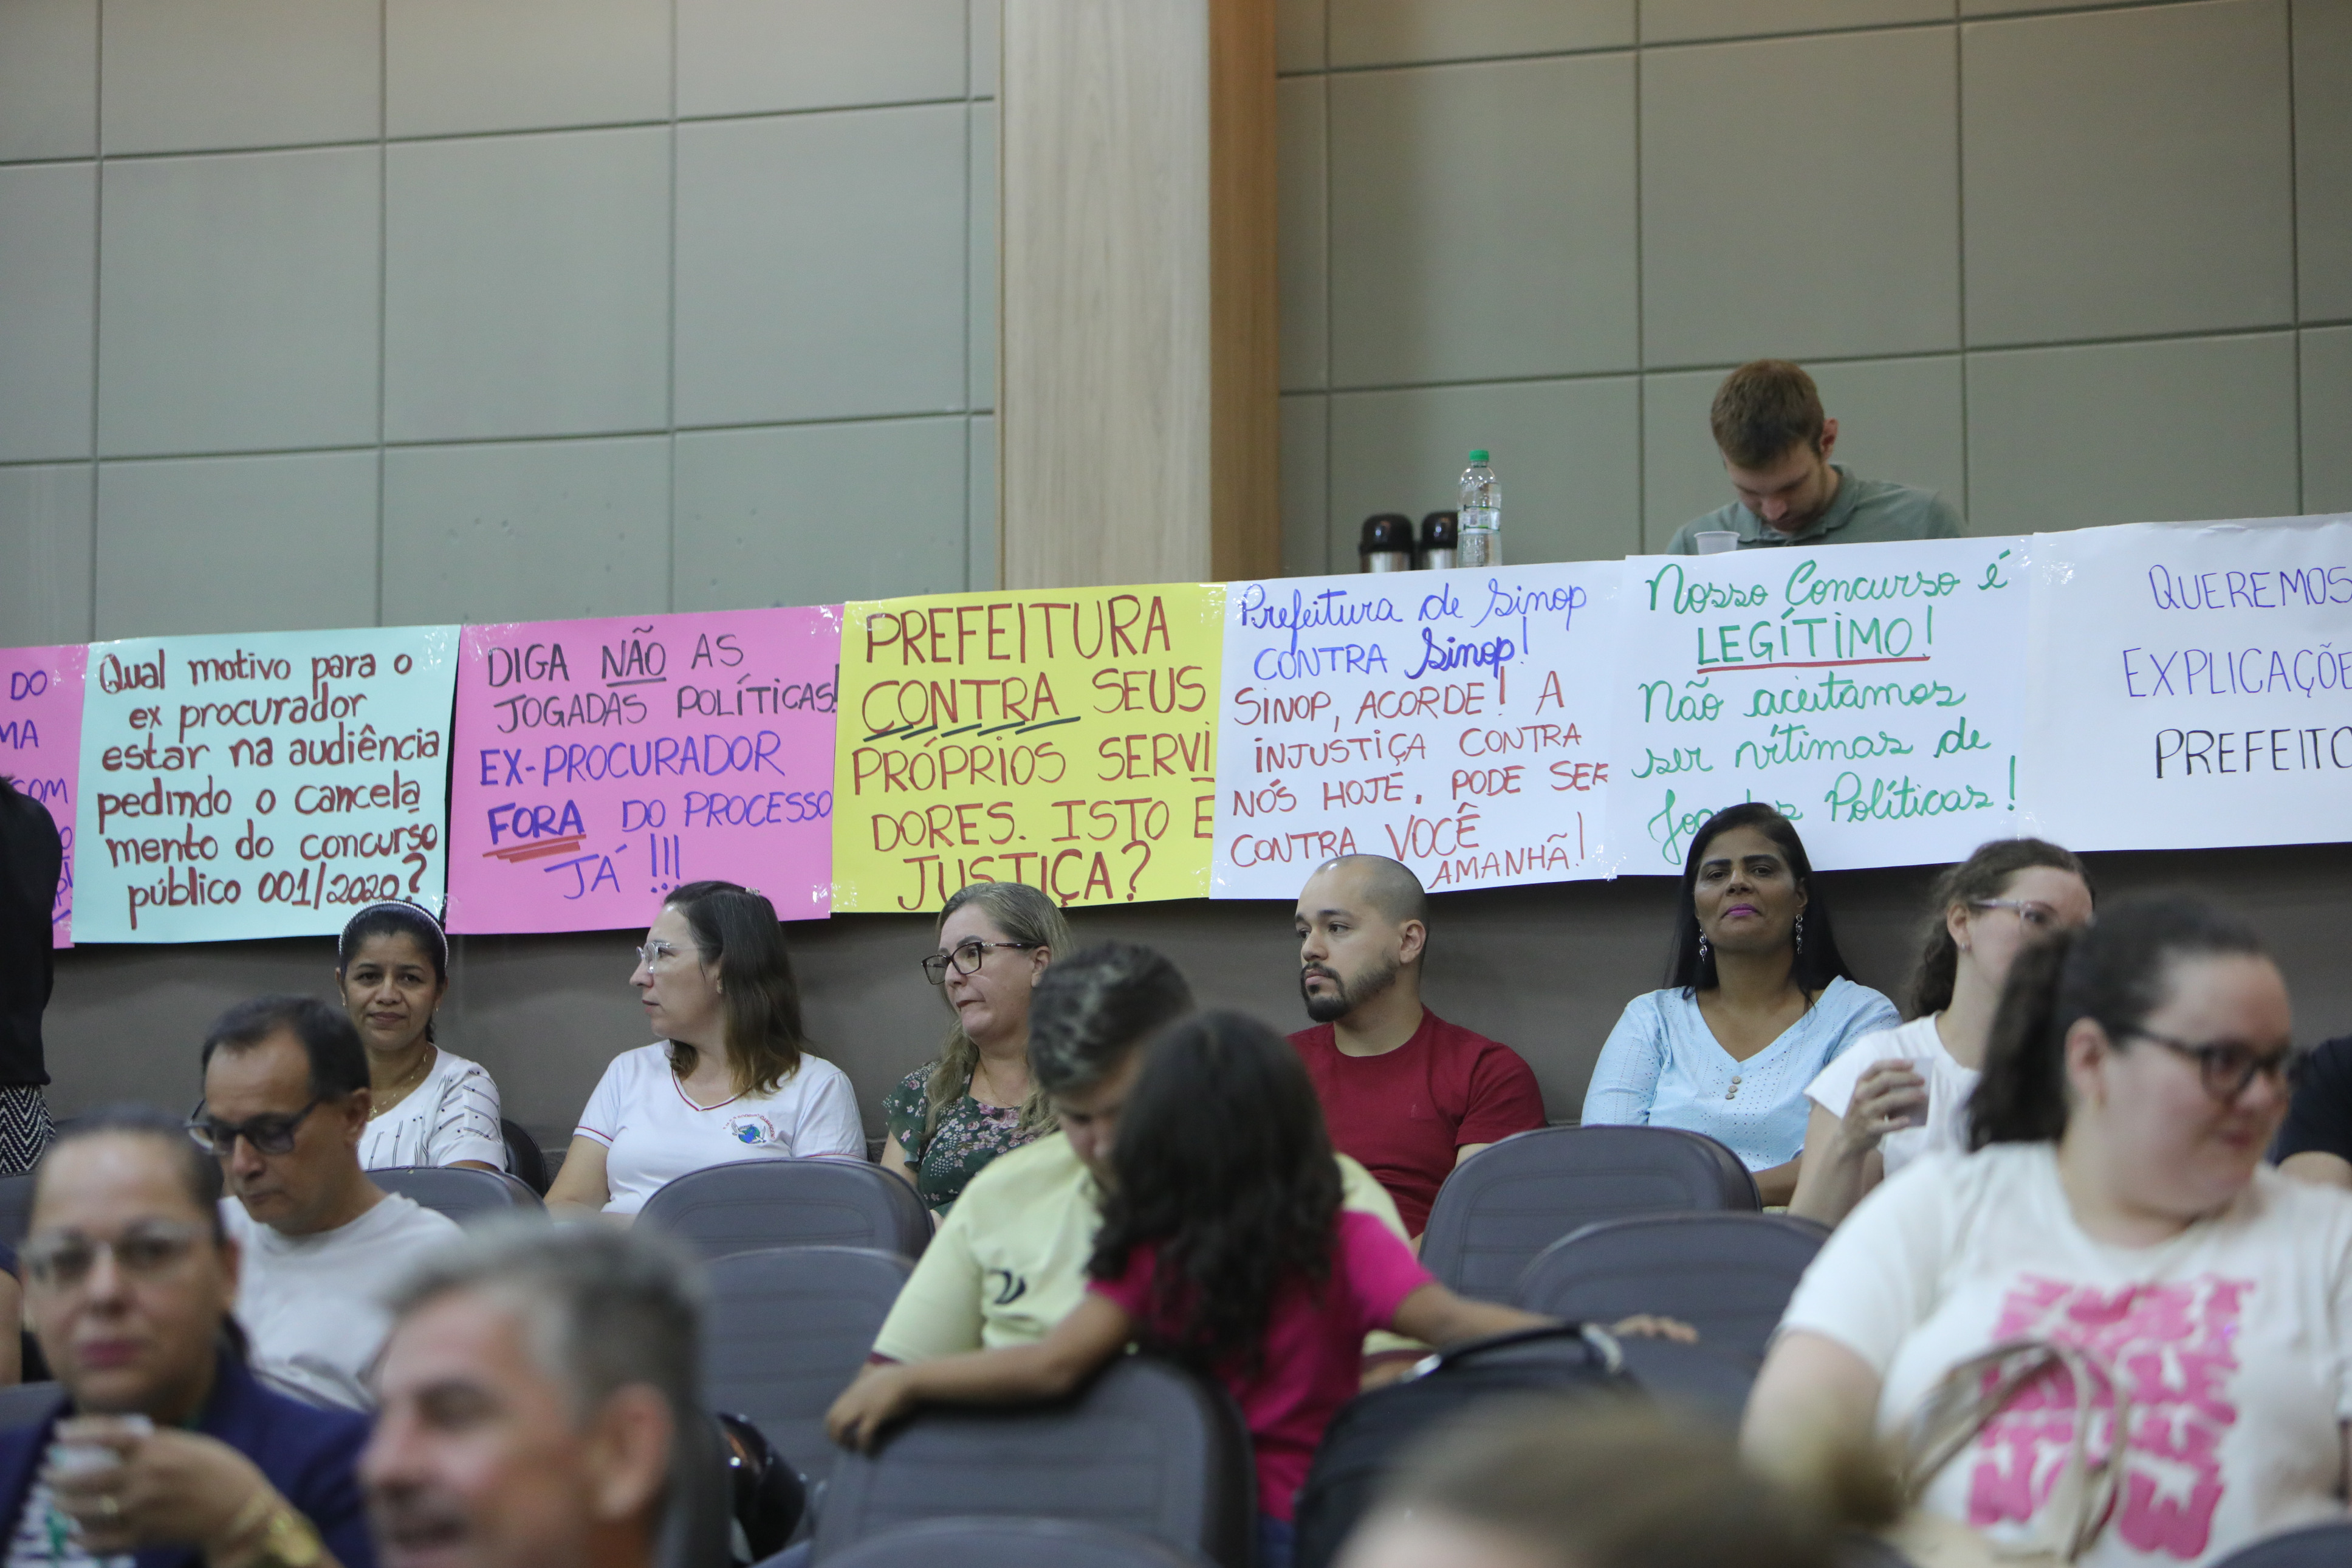 DO
MA
COM
Qual motivo para o
ex procurador
estar na audiência
pedindo o cancela
mento do concurso
público 001/2020?
DIGA NÃO AS
JOGADAS POLÍTICAS!
EX-PROCURADOR
FORA DO PROCESSO
JÁ !!!
PREFEITURA
CONTRA SEUS
PRÓPRIOS SERVI
DORES. ISTO É
JUSTIÇA?
Prefeitura de Sinop
CONTRA Sinop!
SINOP, ACORDE! A
INJUSTIÇA CONTRA
NÓS HOJE, PODE SER
CONTRA VOCÊ
AMANHÃ!
Nosso Concurso é
LEGÍTIMO!
Não aceitamos
ser vítimas de
Políticas!
QUEREMOS
EXPLICAÇÕE
PREFEITO